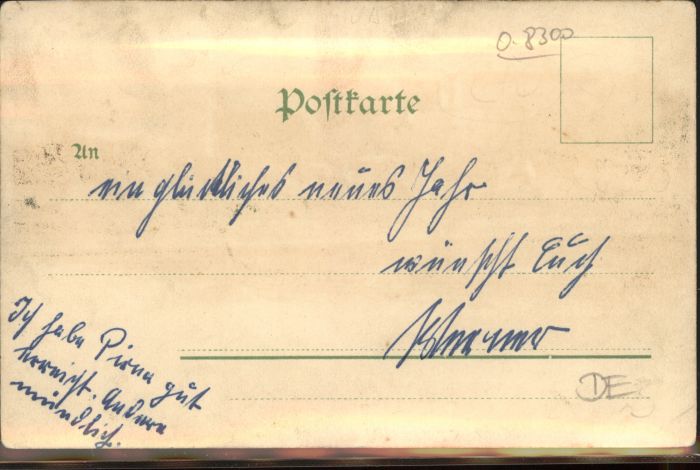 O. 8300
Postkarte
An
ein glückliches neues Jahr
wünscht Euch
Werner
Ich habe Pirna gut
erreicht. Andere
mündlich.
DE